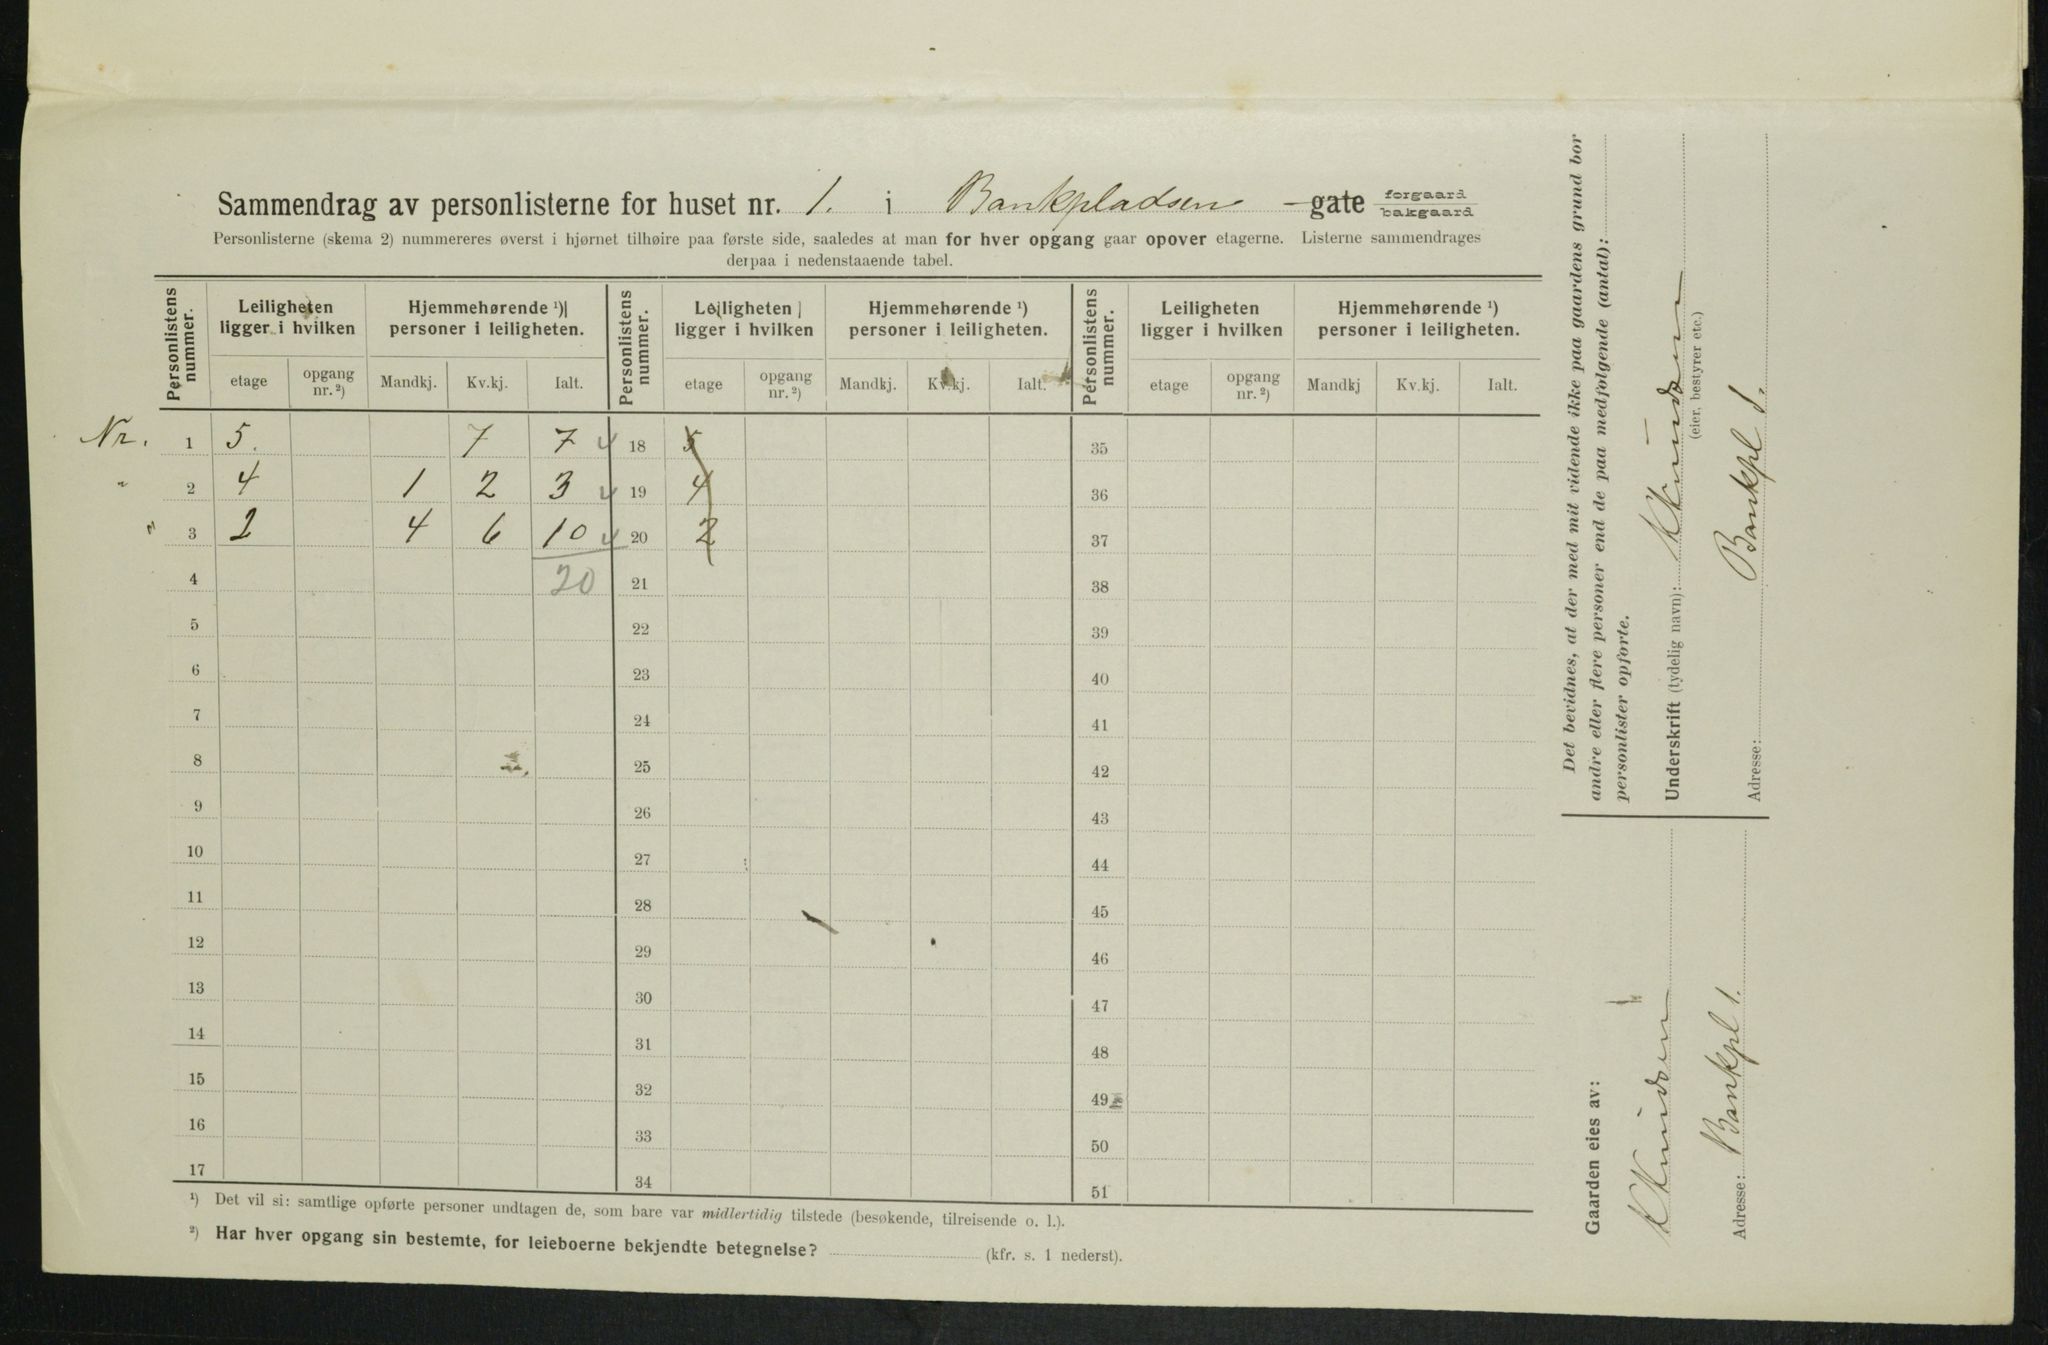 Sammendrag av personlisterne for huset nr. 1. i Bankpladsen gate forgaard bakgaard
Personlisterne (skema 2) nummereres øverst i hjørnet tilhøire paa første side, saaledes at man for hver opgang gaar opover etagerne. Listerne sammendrages
derpaa i nedenstaaende tabel.
Personlistens nummer. Leiligheten ligger i hvilken Hjemmehørende ¹) personer i leiligheten. Personlistens nummer. Leiligheten ligger i hvilken Hjemmehørende ¹) personer i leiligheten. Personlistens nummer. Leiligheten ligger i hvilken Hjemmehørende ¹) personer i leiligheten.
etage opgang nr. ²) Mandkj. Kv.kj. Ialt. etage opgang nr. ²) Mandkj. Kv.kj. Ialt. etage opgang nr. ²) Mandkj Kv.kj. Ialt.
Nr. 1 5. 7 7 18 5 35
" 2 4 1 2 3 19 4 36
" 3 2 4 6 10 20 2 37
4 20 21 38
5 22 39
6 23 40
7 24 41
8 25 42
9 26 43
10 27 44
11 28 45
12 29 46
13 30 47
14 31 48
15 32 49
16 33 50
17 34 51
¹) Det vil si: samtlige opførte personer undtagen de, som bare var midlertidig tilstede (besøkende, tilreisende o. l.).
²) Har hver opgang sin bestemte, for leieboerne bekjendte betegnelse? (kfr. s. 1 nederst).
Det bevidnes, at der med mit vidende ikke paa gaardens grund bor
andre eller flere personer end de paa medfølgende (antal):
personlister opførte.
Underskrift (tydelig navn): K Knudsen
(eier, bestyrer etc.)
Adresse: Bankpl 1.
Gaarden eies av:
K Knudsen
Adresse: Bankpl 1.